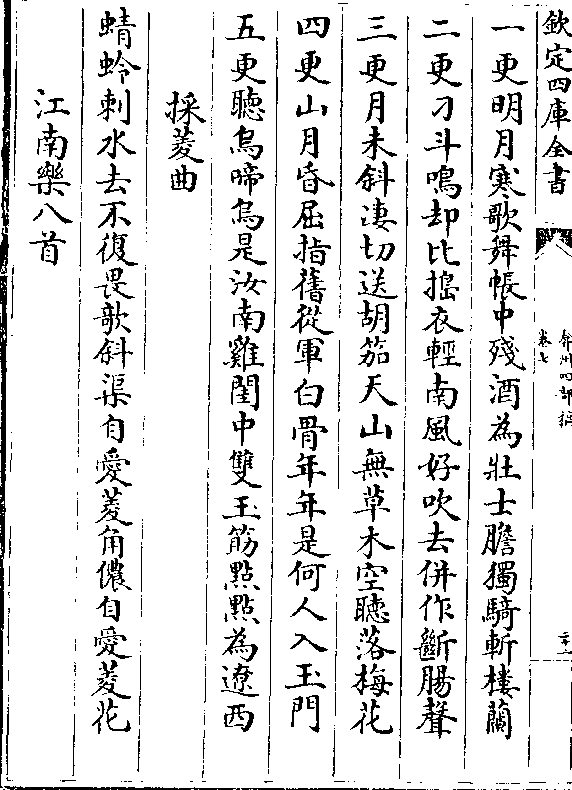 欽定四庫全書
弇州四部稿
卷七
一更明月寒歌舞帳中殘酒為壯士膽獨騎斬樓蘭
二更刁斗鳴却比搗衣輕南風好吹去併作斷腸聲
三更月未斜淒切送胡笳天山無草木空聽落梅花
四更山月昏屈指舊從軍白骨年年是何人入玉門
五更聽烏啼烏是汝南雞閨中雙玉筯點點為遼西
採菱曲
蜻蛉刺水去不復畏歌斜渠自愛菱角儂自愛菱花
江南樂八首